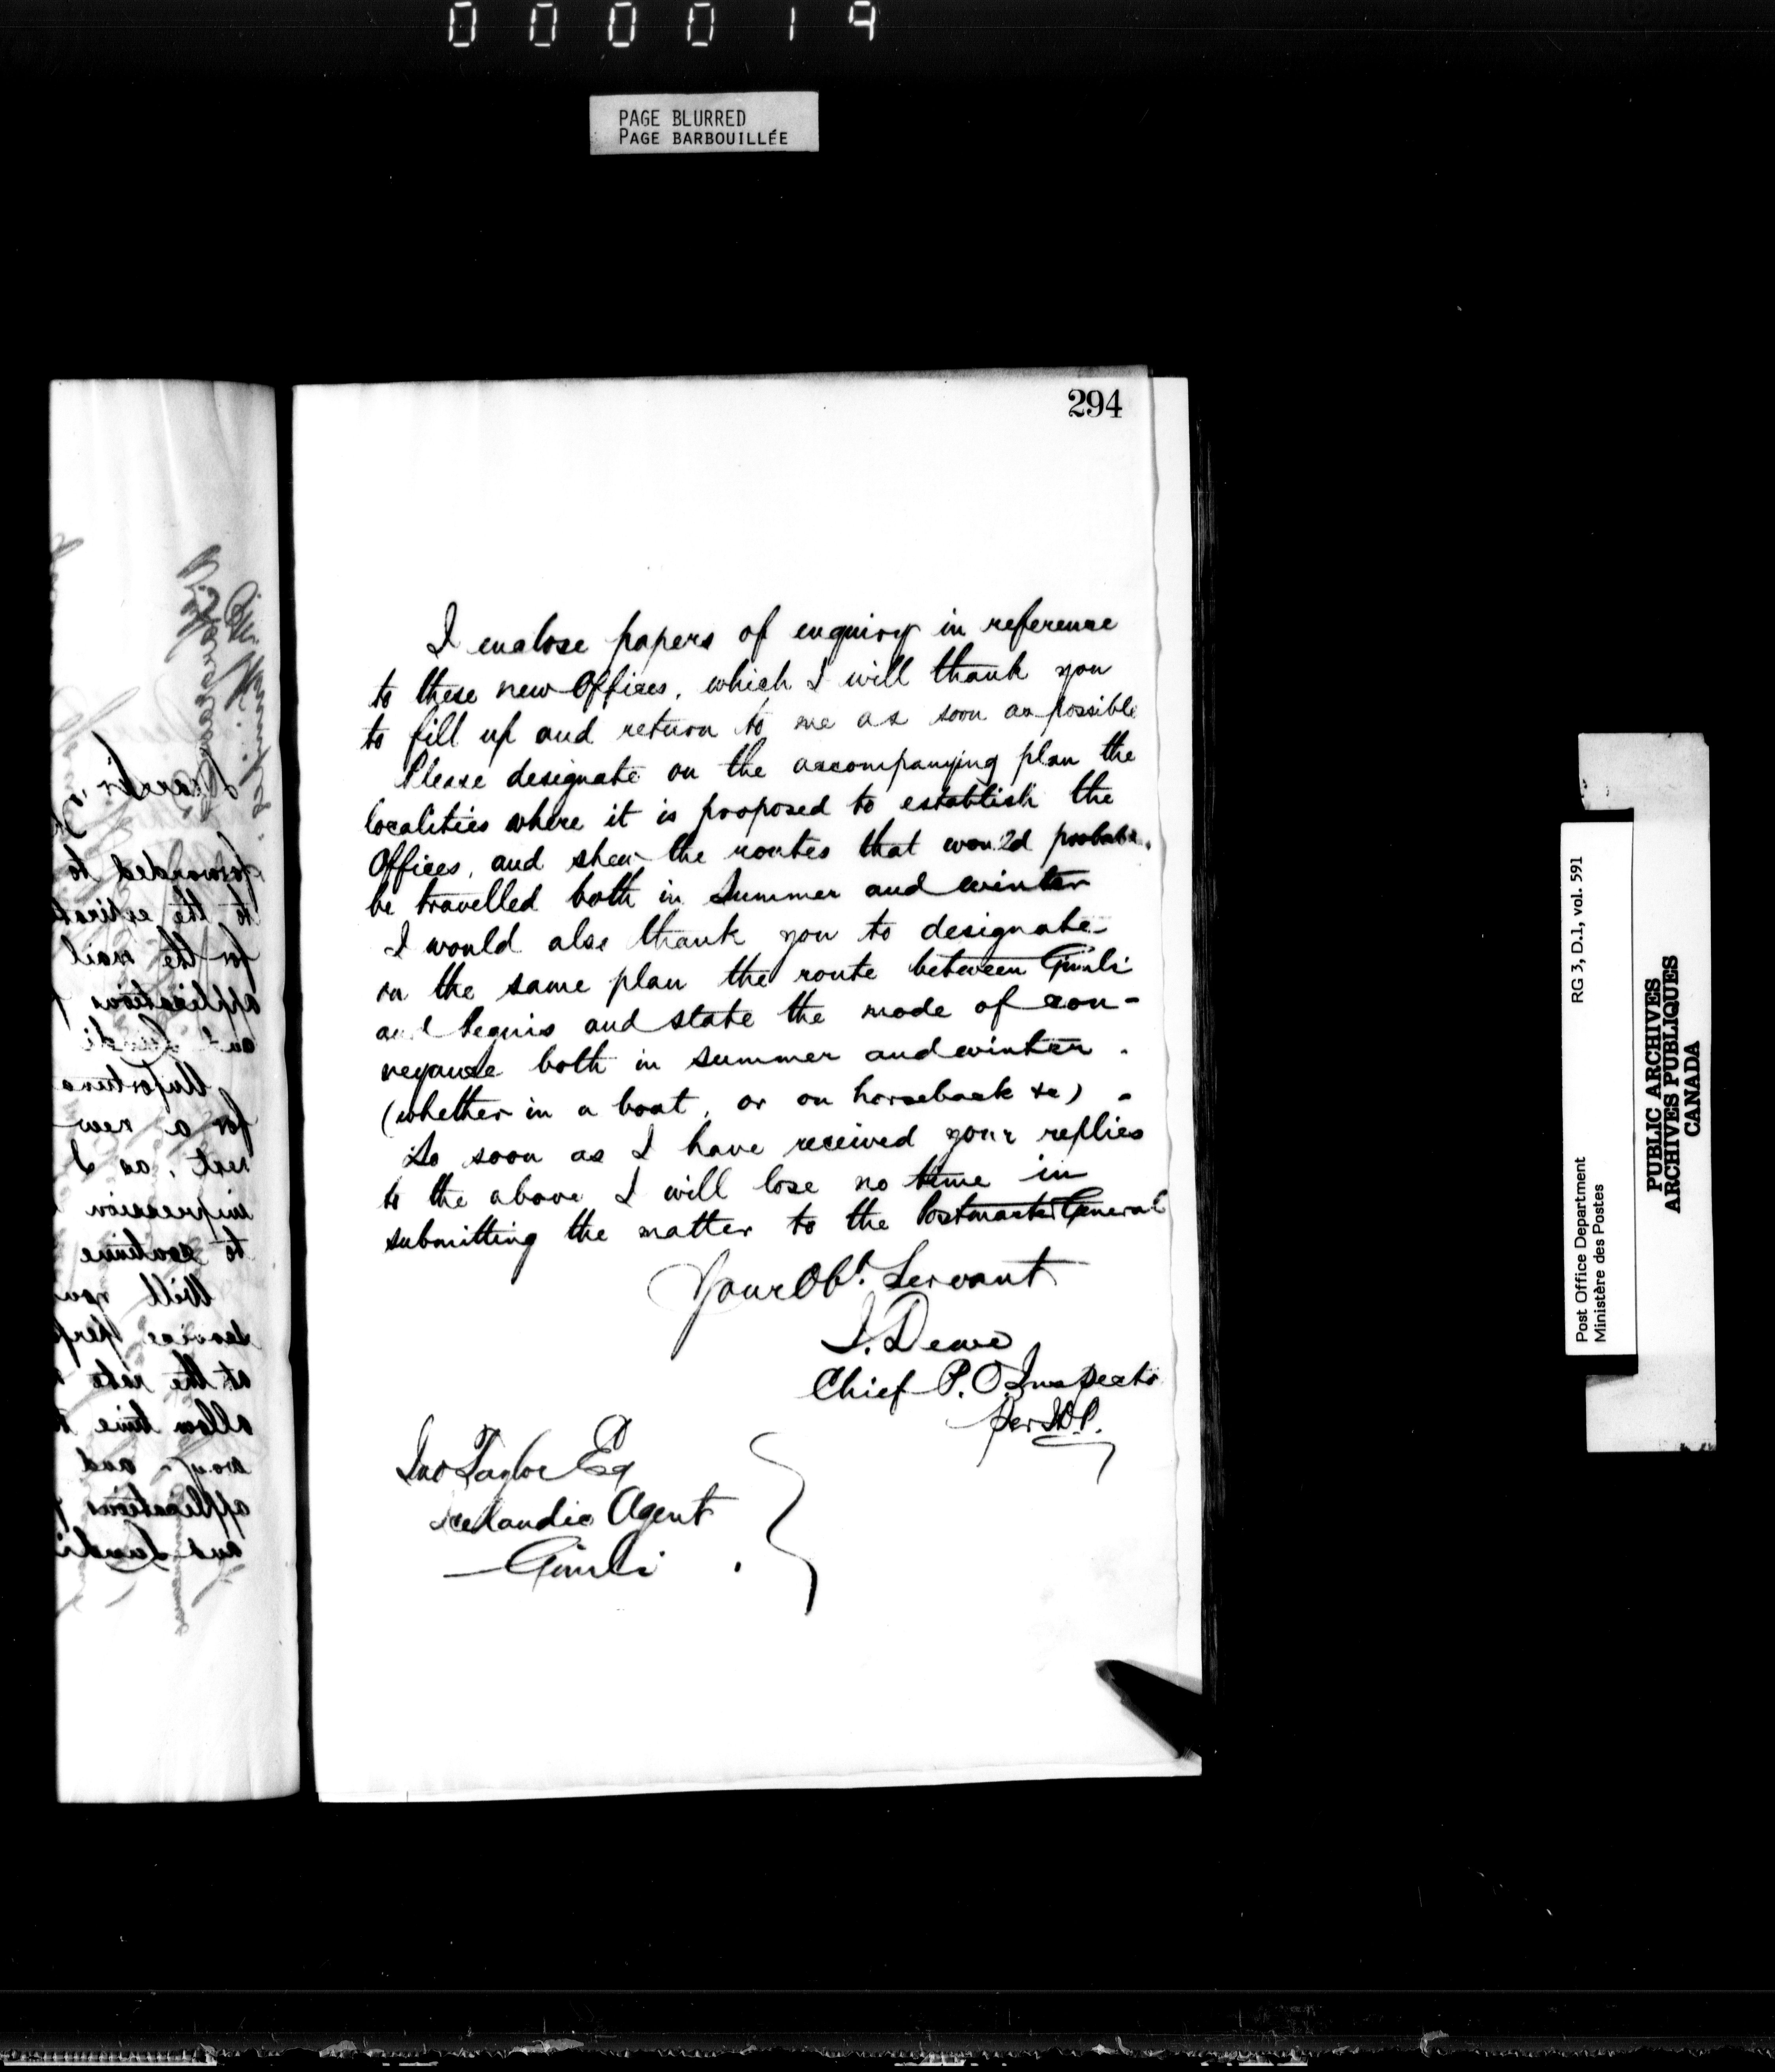 000019
PAGE BLURRED
PAGE BARBOUILLÉE
294
I enclose papers of enquiry in reference
to these new Offices, which I will thank you
to fill up and return to me as soon as possible
Please designate on the accompanying plan the
localities where it is proposed to establish the
Offices, and shew the routes that would
be travelled both in Summer and winter
I would also thank you to designate
on the same plan the route between Gimli
and and state the mode of con-
veyance both in summer and winter.
(whether in a boat, or on horseback &c)
So soon as I have received your replies
to the above I will lose no time in
submitting the matter to the Postmaster General
Your Obt. Servant
J. Dewe
Chief P. O. Inspector
per
Jno Taylor Esq
Icelandic Agent
Gimli
forwarded to
to the
for the mail
applications
and Lundi
for a new
rest, as I
impression
to continue
Will you
service
at the rate
allow time
way and
applications
and Lundi
Post Office Department
Ministère des Postes
RG 3, D.1, vol. 591
PUBLIC ARCHIVES
ARCHIVES PUBLIQUES
CANADA